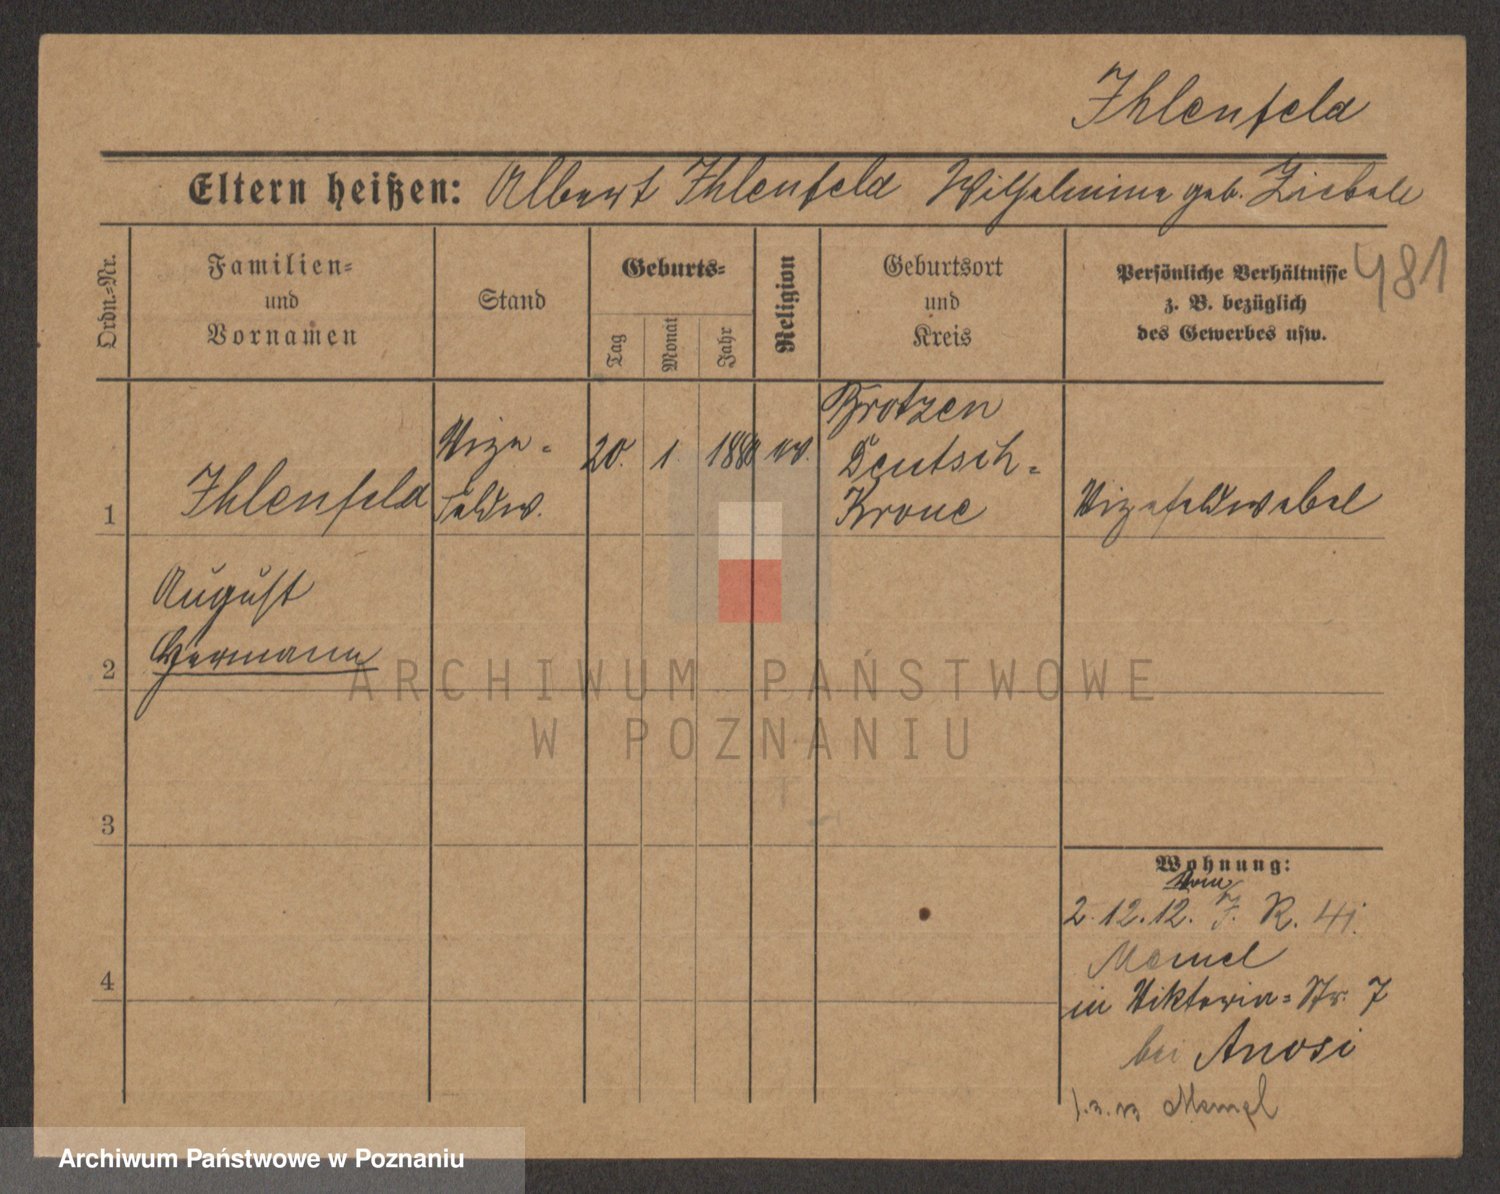 Ihlenfeld
Eltern heißen: Albert Ihlenfeld Wilhelmine geb. Ziebele
Ordn.-Nr.
Familien-
und
Vornamen
Stand
Geburts-
Tag
Monat
Jahr
Religion
Geburtsort
und
Kreis
Persönliche Verhältnisse
z. B. bezüglich
des Gewerbes usw.
481
1
Ihlenfeld
Vize-
Feldw.
20. 1. 188 ev.
Brotzen
Deutsch-
Krone
Vizefeldwebel
2
August
Hermann
3
4
Wohnung:
vom
2. 12. 12. I. R. 41.
Memel
in Viktoria-Str. 7
bei Anosi
1.3.13 Memel
ARCHIWUM PAŃSTWOWE
W POZNANIU
Archiwum Państwowe w Poznaniu